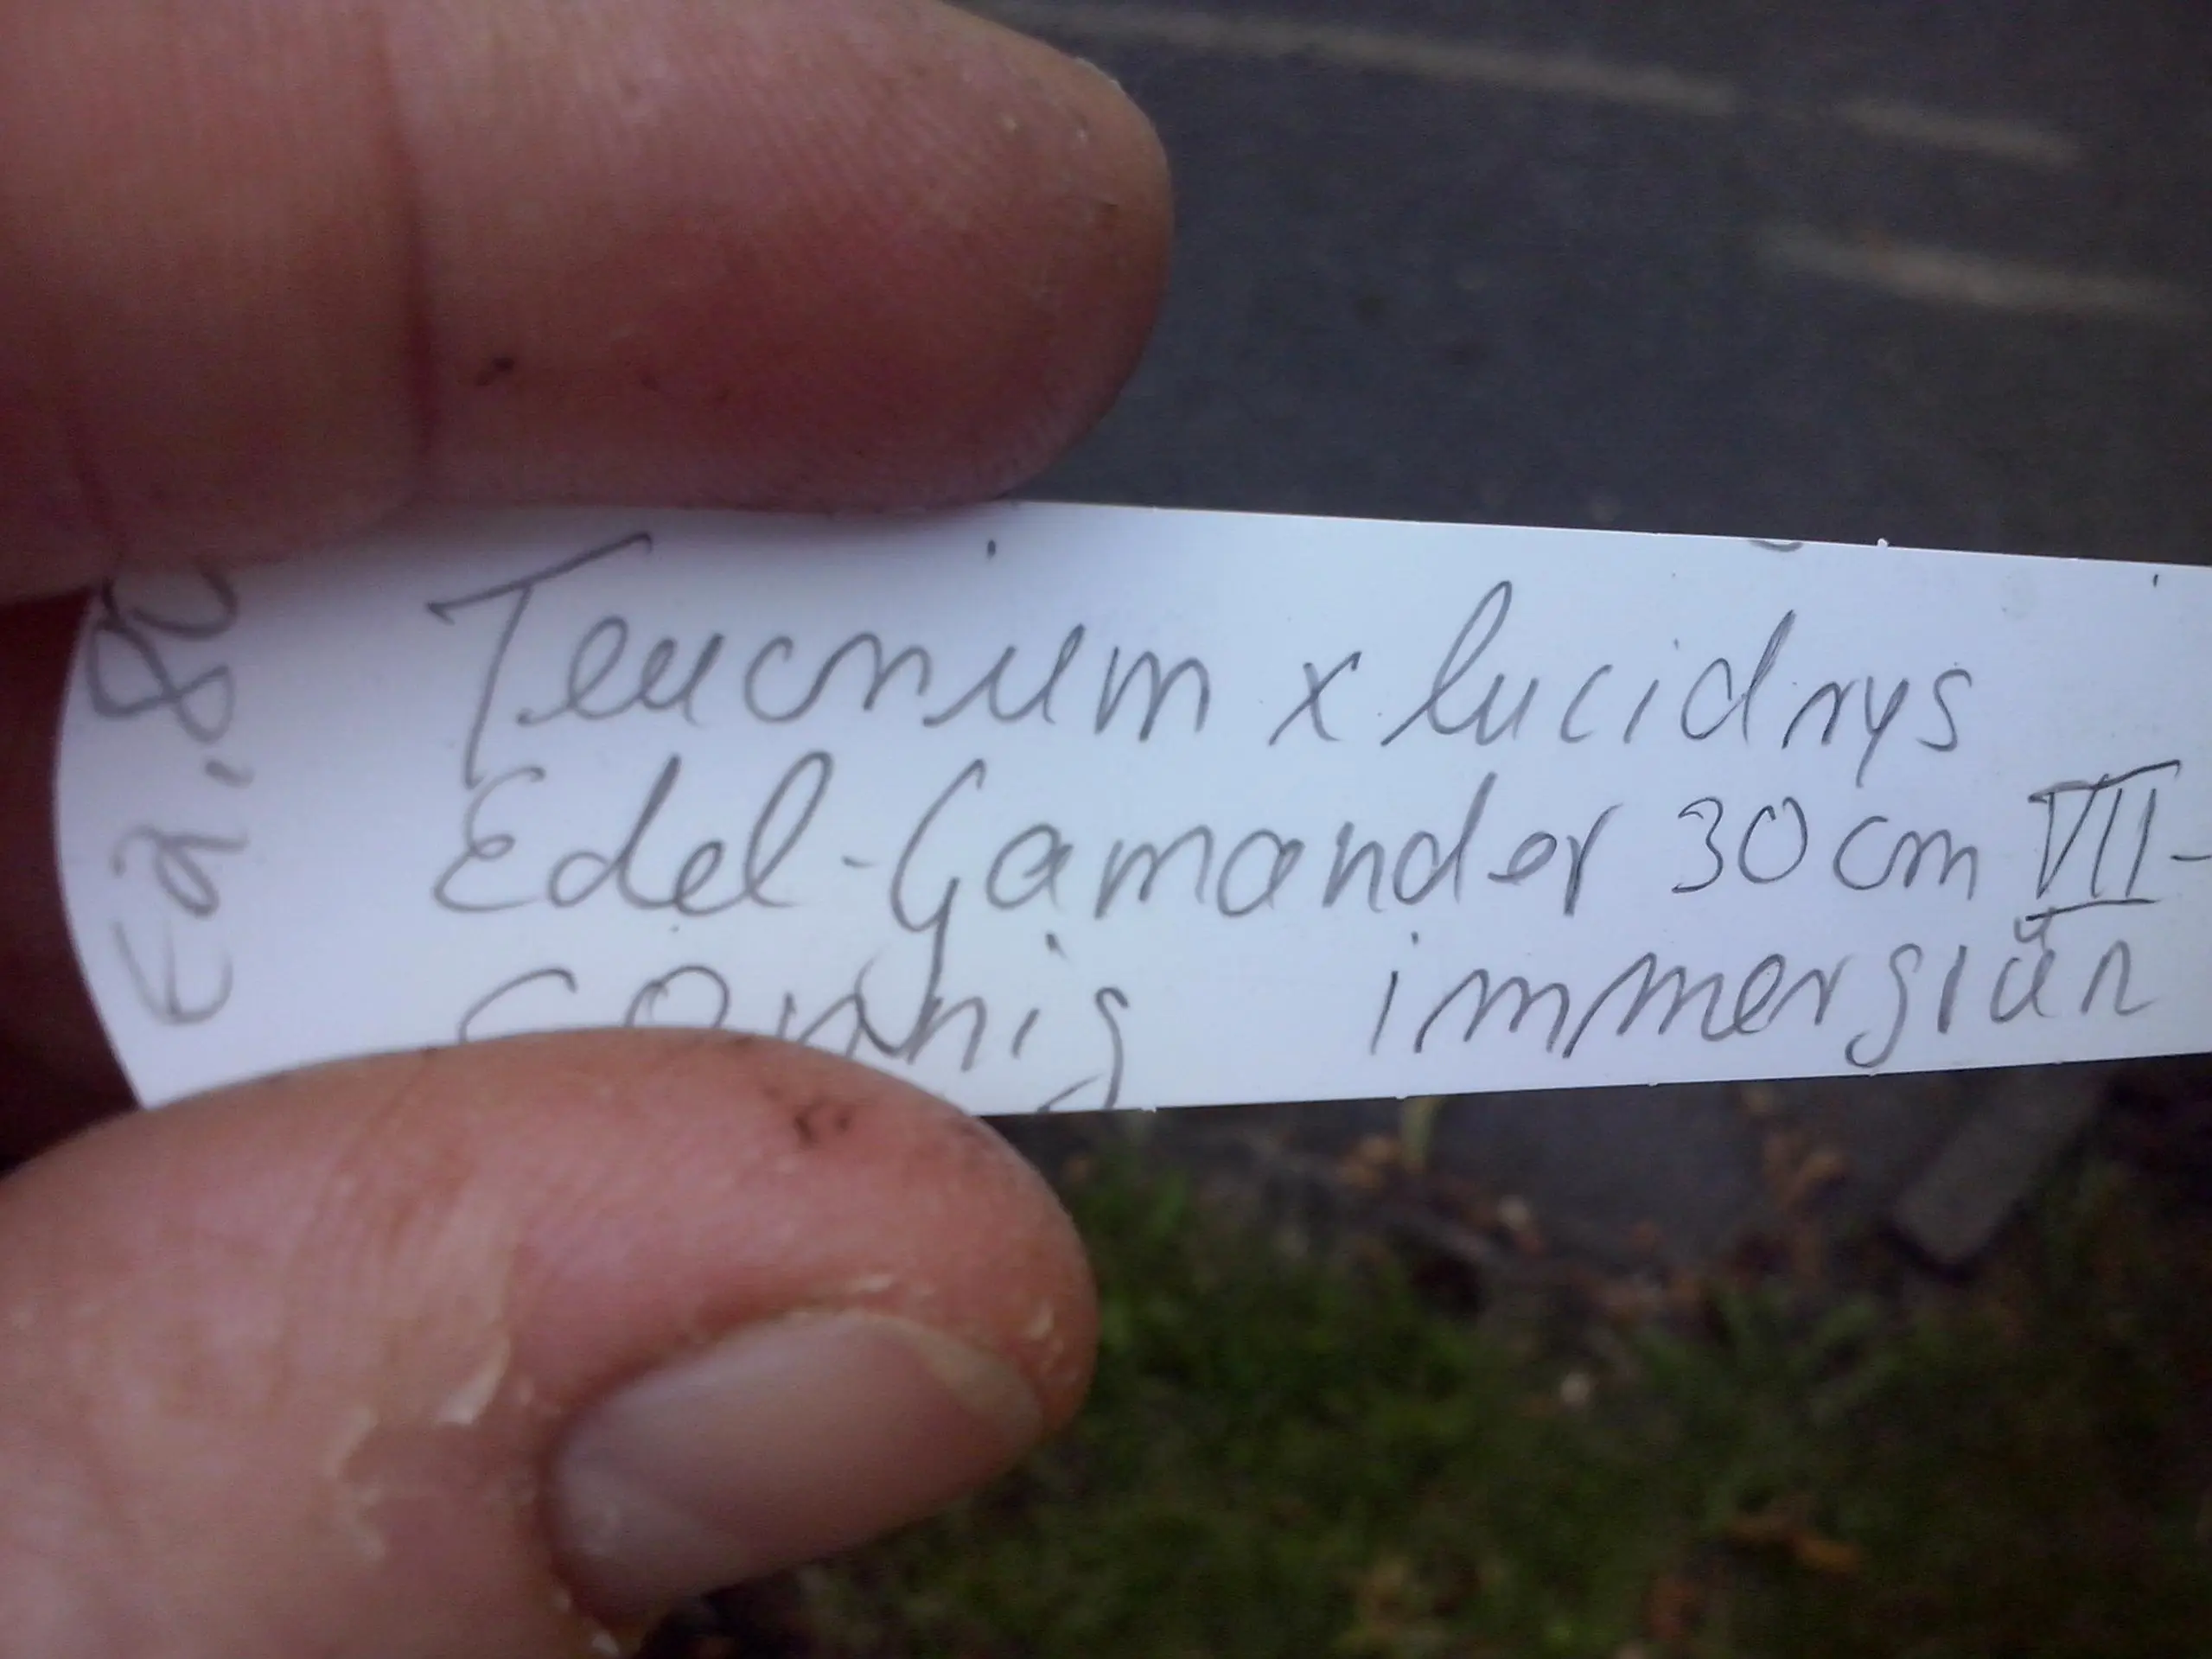 Teucrium x lucidrys
Edel-Gamander 30cm VII-
sonnig immergrün